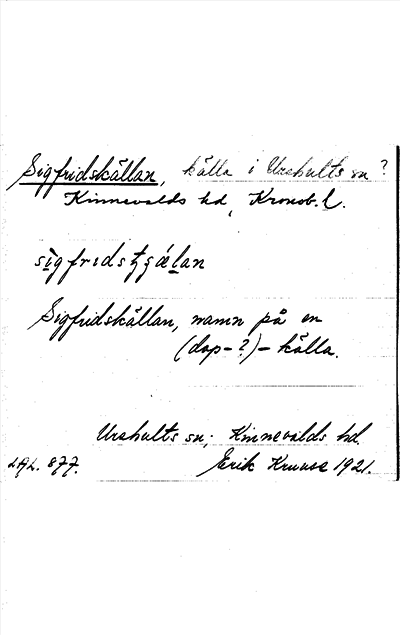 Sigfridskällan, källa i Urshults sn?
Kinnevalds hd, Kronob. l.
sigfridstʒälan
Sigfridskällan, namn på en
(dop-?)-källa.
Urshults sn; Kinnevalds hd.
LAL. 877. Erik Kruuse 1921.